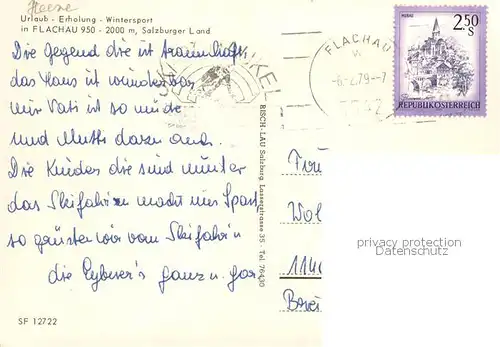 Urlaub - Erholung - Wintersport
in FLACHAU 950 - 2000 m, Salzburger Land
Die Gegend die ist traumhaft,
das Haus ist wunderbar
nur Vati ist so müde
und Mutti dazu auch.
Die Kinder die sind munter
das Skifahr'n macht uns Spass
so grüsten wir vom Skifahr'n
die ganz u. gar.
SF 12722
RISCH-LAU Salzburg, Lasserstrasse 35 - Tel. 76430
FLACHAU
-6.-2.79-7
5542
MURAU
2.50
S
REPUBLIK ÖSTERREICH
Wol
1140
privacy protection
Datenschutz